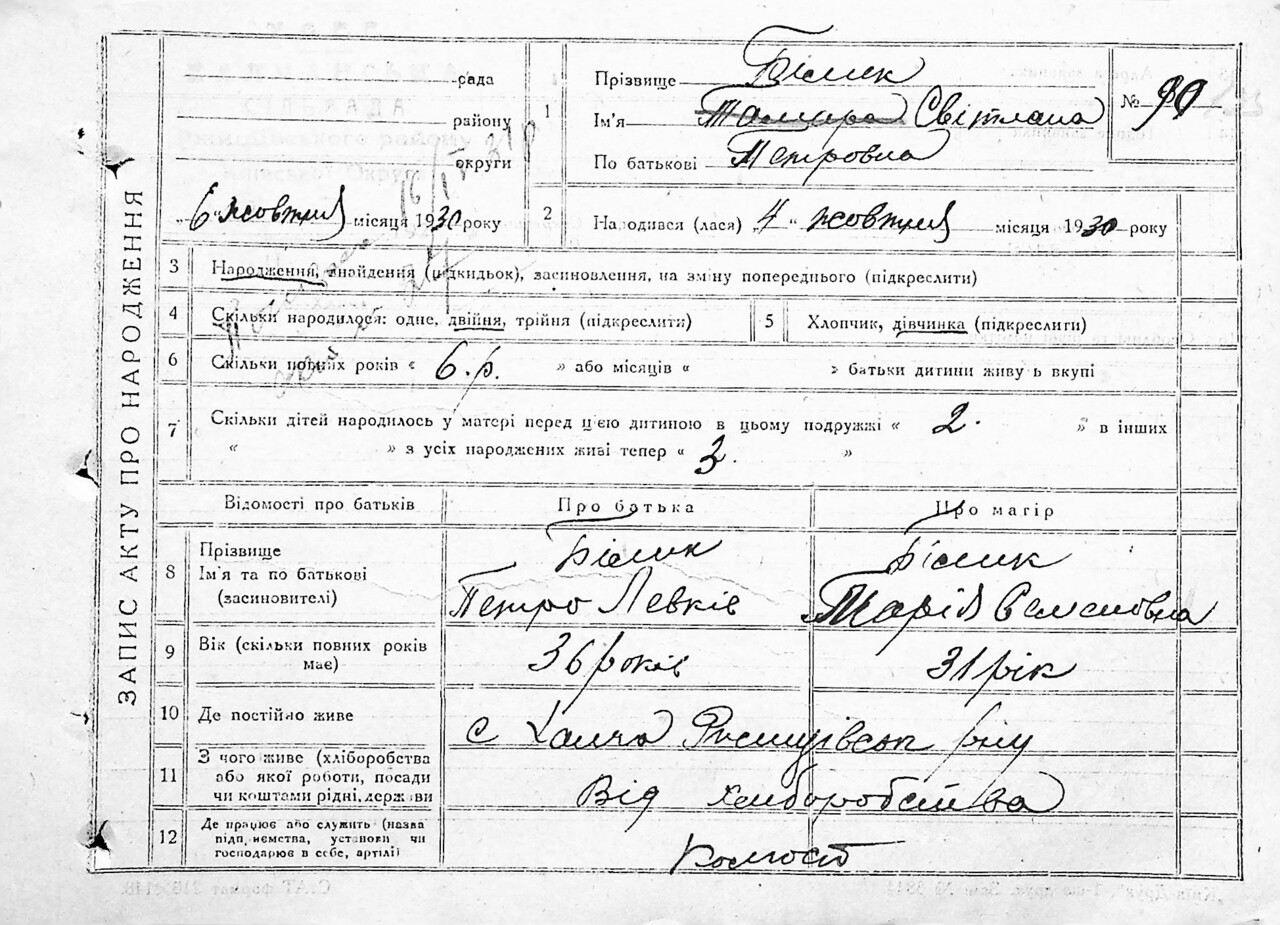 ЗАПИС АКТУ ПРО НАРОДЖЕННЯ
рада
району
округи
„6“ жовтня місяця 1930 року
1 Прізвище Білик
Ім'я Тамара Світлана
По батькові Петровна
№ 90
2 Народився (лася) „4“ жовтня місяця 1930 року
3 Народження, знайдення (підкидьок), засиновлення, на зміну попереднього (підкреслити)
4 Скільки народилося: одне, двійня, трійня (підкреслити)
5 Хлопчик, дівчинка (підкреслити)
6 Скільки повних років « 6 р. » або місяців « » батьки дитини живуть вкупі
7 Скільки дітей народилось у матері перед цією дитиною в цьому подружжі « 2. » в інших
« » з усіх народжених живі тепер « 3. »
Відомості про батьків Про батька Про матір
8 Прізвище Білик Білик
Ім'я та по батькові Петро Левків Марія Семеновна
(засиновителі)
9 Вік (скільки повних років має) 36 років 31 рік
10 Де постійно живе с Халча
11 З чого живе (хліборобства
або якої роботи, посади Від хліборобства
чи коштами рідні, держави
12 Де працює або служить (назва
підприємства, установи чи
господарює в себе, артілі)